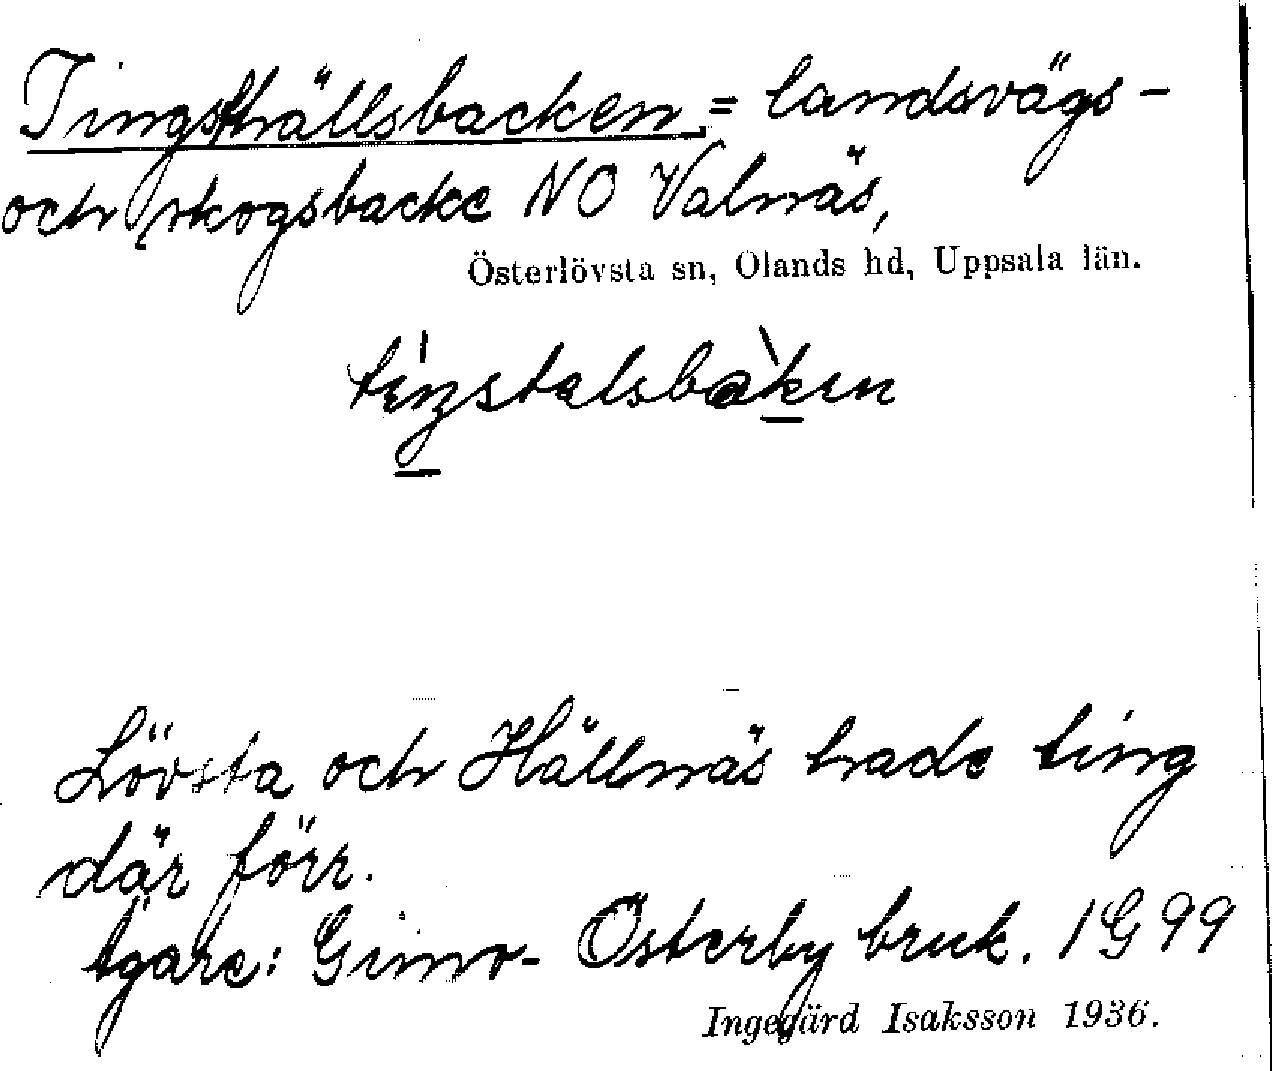 Tingsthällsbacken = landsvägs-
och skogsbacke NO Valnäs,
Österlövsta sn, Olands hd, Uppsala län.
Lövsta och Hällnäs hade ting
där förr.
Ägare: Gimo-Österby bruk. IG 99
Ingegärd Isaksson 1936.